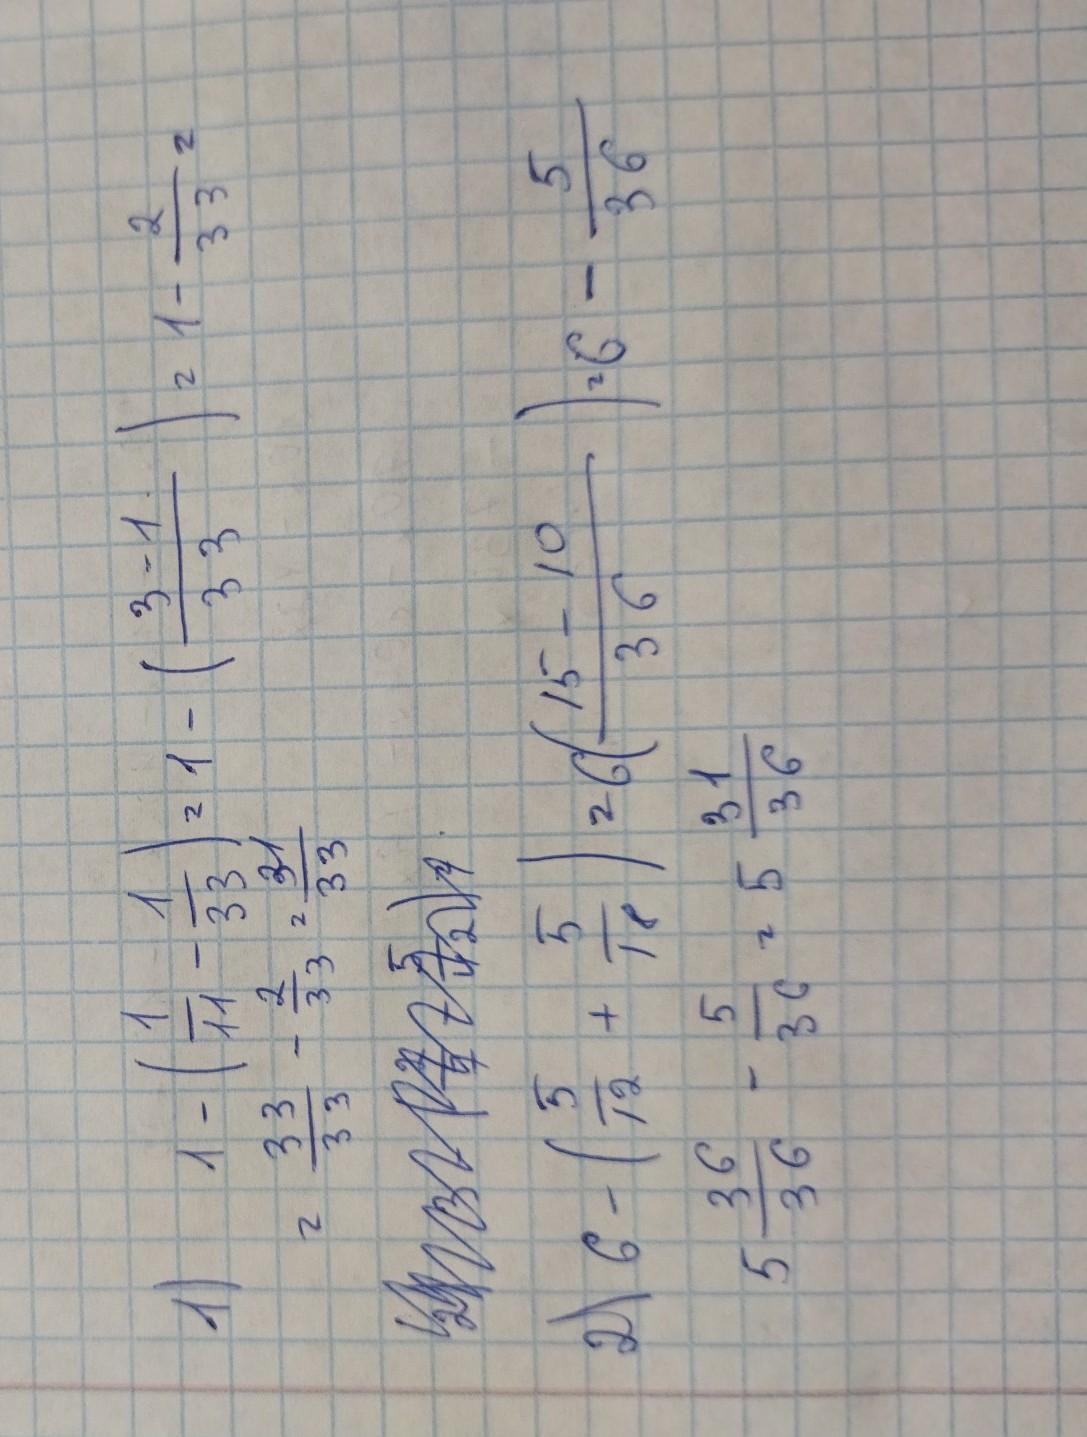 1) 1 - (1/11 - 1/33) = 1 - (3-1/33) = 1 - 2/33 =
= 33/33 - 2/33 = 31/33
2) 6 - (5/12 + 5/18) = 6(15 - 10/36) = 6 - 5/36
5 36/36 - 5/36 = 5 31/36